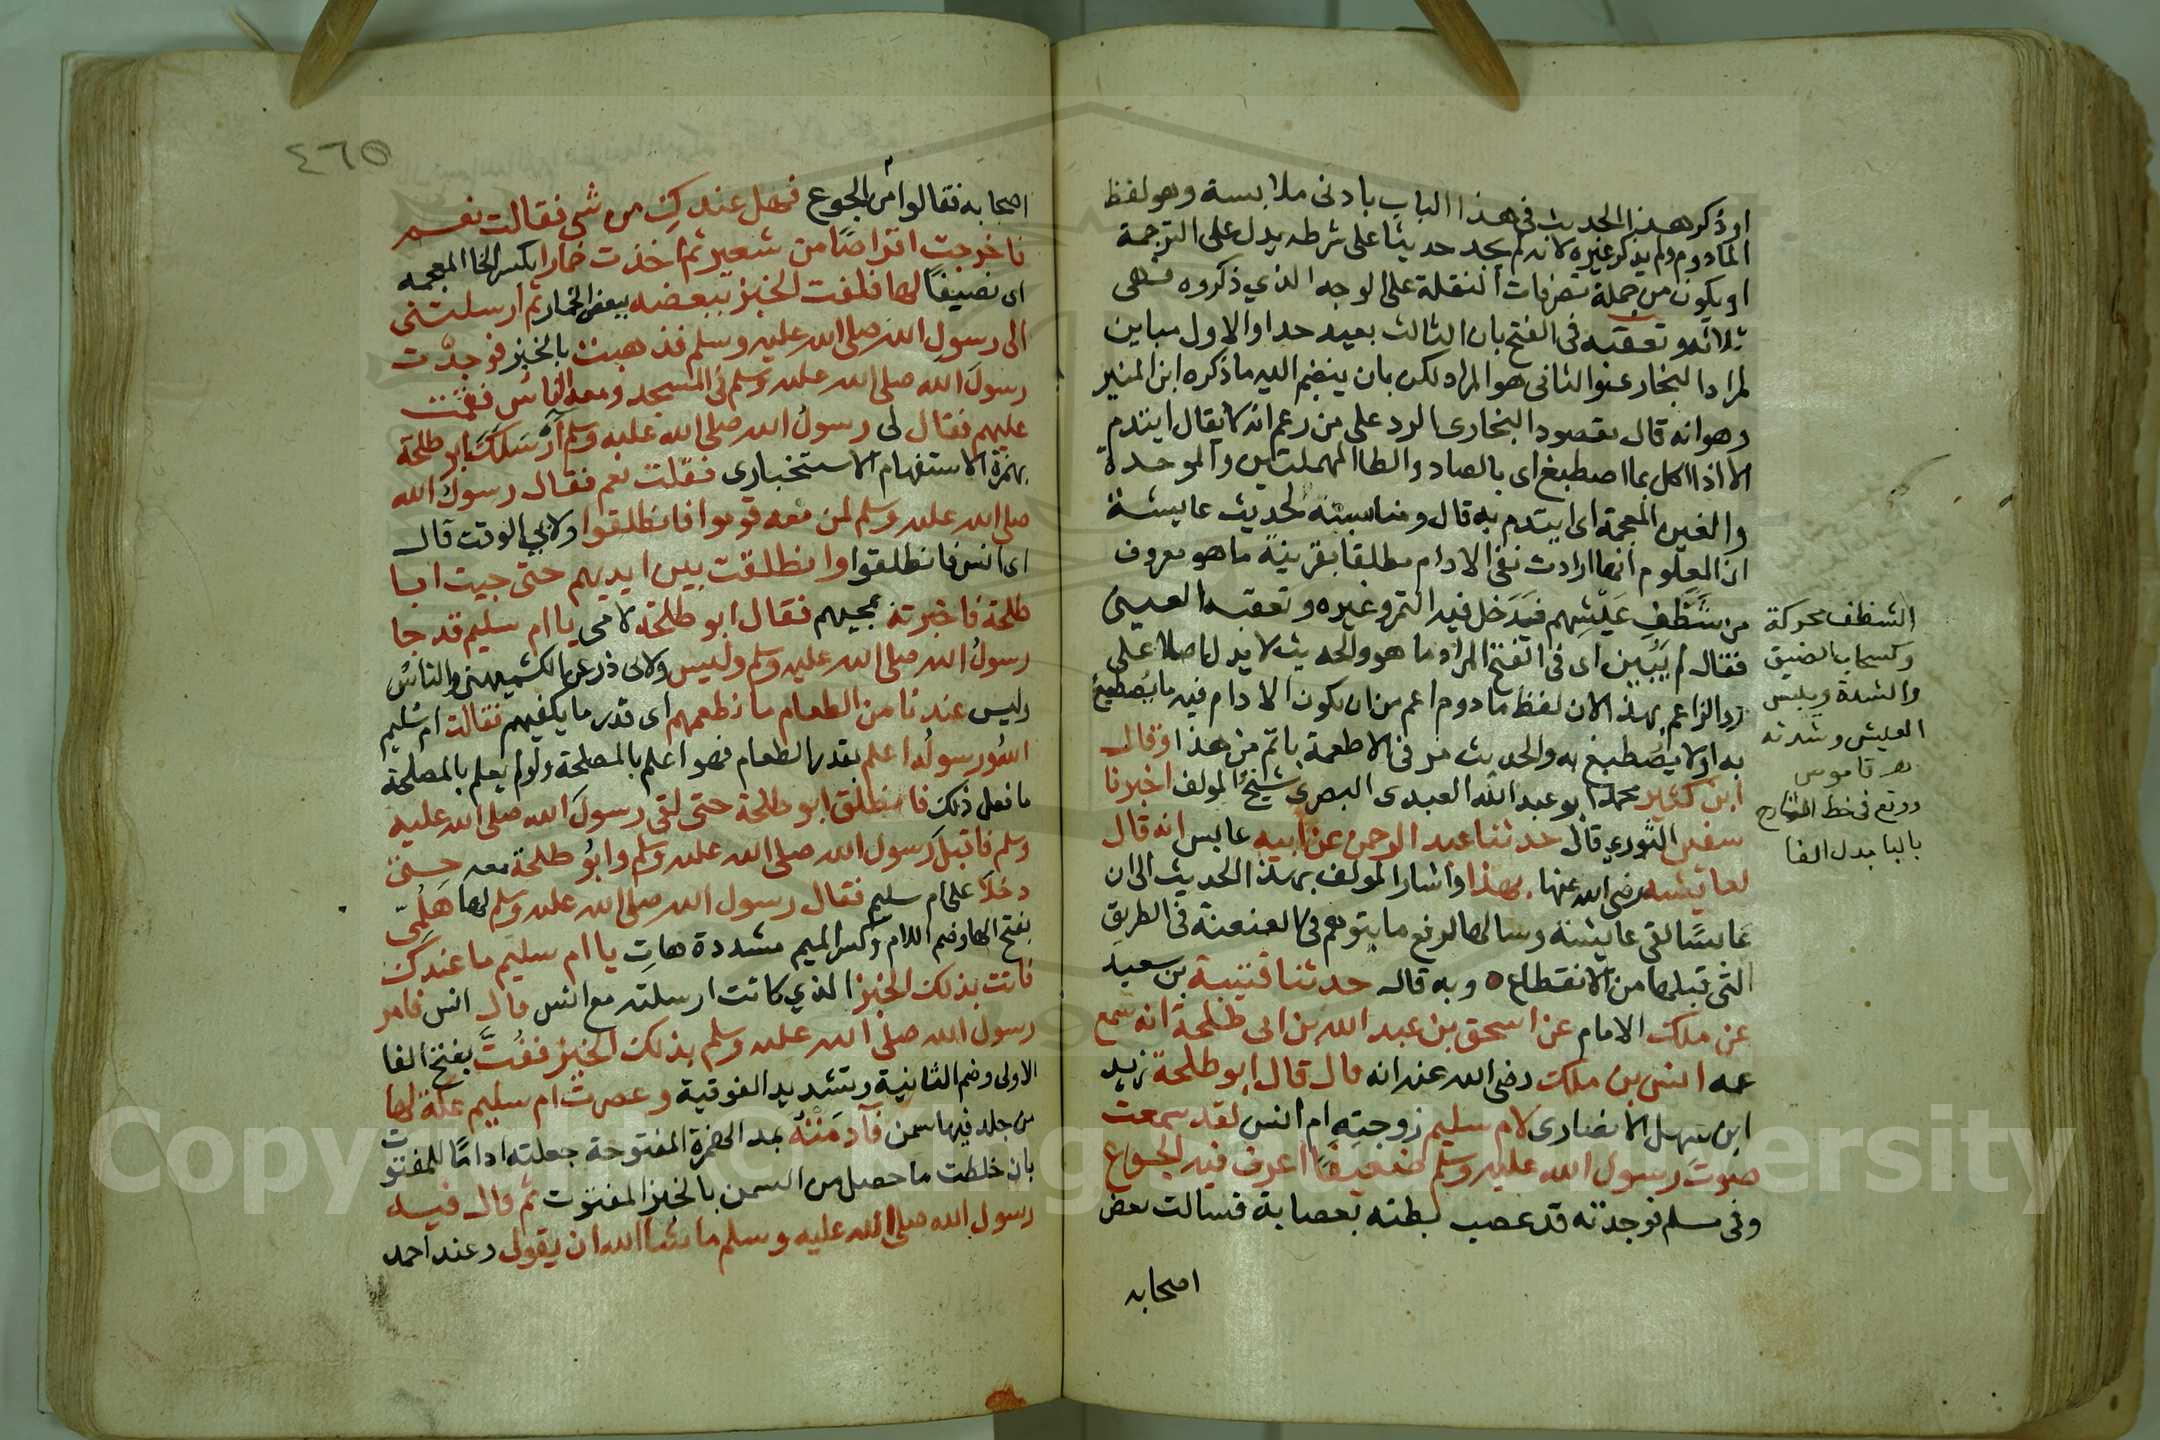 او ذكر هذا الحديث في هذا الباب بادنى ملابسة وهو لفظ
المادوم ولم يذكر غيره لانه لم يجد حديثا على شرطه يدل على الترجمة
او يكون من جملة تصرفات النقلة على الوجه الذي ذكروه فهي
ثلاثة وتعقبه في الفتح بان الثالث بعيد جدا والاول مباين
لمراد البخاري والثاني هو المراد لكن بان ينضم اليه ما ذكره ابن المنير
وهو انه قال مقصود البخاري الرد على من زعم انه لا يقال ايتدم
الا اذا اكل بما اصطبغ اي بالصاد والطا المهملتين والموحدة
والغين المعجمة اي ايتدم به قال ومناسبته لحديث عايشة
ان المعلوم انها ارادت نفي الادام مطلقا بقرينة ما هو معروف
من شظف عيشهم فيدخل فيه التمر وغيره وتعقبه العيني
فقال لم يبين اي في الفتح المراد ما هو والحديث لا يدل اصلا على
رد الزاعم بهذا لان لفظ مادوم اعم من ان يكون الادام فيه ما يصطبغ
به او لا يصطبغ به والحديث مر في الاطعمة باتم من هذا وقال
ابن كثير محمد ابو عبد الله العبدي البصري شيخ المولف اخبرنا
سفين الثوري قال حدثنا عبد الرحمن عن ابيه عابس انه قال
لعايشه رضي الله عنها بهذا واشار المولف بهذا الحديث الى ان
عابسا لقي عايشة وسالها لرفع ما يتوهم في العنعنة في الطريق
التي قبلها من الانقطاع ه وبه قال حدثنا قتيبة بن سعيد
عن ملك الامام عن اسحق بن عبد الله بن ابي طلحة انه سمع
عمه انس بن ملك رضي الله عنه انه قال قال ابو طلحة زيد
ابن سهل الانصاري لام سليم زوجته ام انس لقد سمعت
صوت رسول الله صلى الله عليه وسلم ضعيفا اعرف فيه الجوع
وفي مسلم فوجدته قد عصب بطنه بعصابة فسالت بعض
اصحابه
الشظف محركة
وكسحاب الضيق
والشدة ويبس
العيش وشدته
اهـ قاموس
ووقع في خط الشارح
بالبا بدل الفا
٤٦٥
اصحابه فقالوا من الجوع فهل عندك من شي فقالت نعم
فاخرجت اقراصا من شعير ثم اخذت خمارا بكسر الخا المعجمه
اي نصيفا لها فلفت الخبز ببعضه ببعض الخمار ثم ارسلتني
الى رسول الله صلى الله عليه وسلم فذهبت بالخبز فوجدت
رسول الله صلى الله عليه وسلم في المسجد ومعه الناس فقمت
عليهم فقال لي رسول الله صلى الله عليه وسلم آرسلك ابو طلحة
بهمزة الاستفهام الاستخباري فقلت نعم فقال رسول الله
صلى الله عليه وسلم لمن معه قوموا فانطلقوا ولابي الوقت قال
اي انس فانطلقوا وانطلقت بين ايديهم حتى جيت ابا
طلحة فاخبرته بمجيهم فقال ابو طلحة لامي يا ام سليم قد جا
رسول الله صلى الله عليه وسلم وليس ولابي ذر عن الكشميهني والناس
وليس عندنا من الطعام ما نطعمهم اي قدر ما يكفيهم فقالت ام سليم
الله ورسوله اعلم بقدر الطعام فهو اعلم بالمصلحة ولو لم يعلم بالمصلحة
ما فعل ذلك فانطلق ابو طلحة حتى لقي رسول الله صلى الله عليه
وسلم فاقبل رسول الله صلى الله عليه وسلم وابو طلحة معه حتى
دخلا على ام سليم فقال رسول الله صلى الله عليه وسلم لها هلمي
بفتح الها وضم اللام وكسر الميم مشددة هات يا ام سليم ما عندك
فاتت بذلك الخبز الذي كانت ارسلته مع انس قال انس فامر
رسول الله صلى الله عليه وسلم بذلك الخبز ففت بفتح الفا
الاولى وضم الثانية وتشديد الفوقية وعصرت ام سليم عكة لها
من جلد فيها سمن فآدمته بمد الهمزة المفتوحة جعلته اداما للمفتوت
بان خلطت ما حصل من السمن بالخبز المفتوت ثم قال فيه
رسول الله صلى الله عليه وسلم ما شا الله ان يقول وعند احمد
Copyright © King Saud University